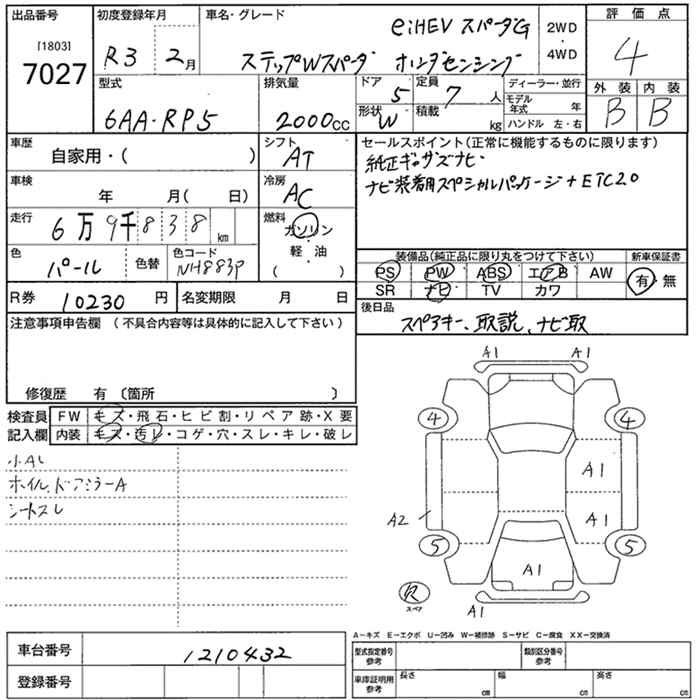 出品番号 初度登録年月 車名・グレード 評価点
[1803]
7027
R3 2月
eiHEV スパーダG
ステップWスパーダ ホンダセンシング
2WD
・
4WD
4
型式 排気量 ドア 定員 ディーラー・並行 外装 内装
6AA・RP5 2000CC 5 7人
形状 W 積載 kg
モデル年式 年
ハンドル 左・右
B B
車歴 自家用・( )
シフト AT
セールスポイント(正常に機能するものに限ります)
純正ギャザズナビ
ナビ装着用スペシャルパッケージ+ETC2.0
車検 年 月( 日)
冷房 AC
走行 6万9千838km
燃料 ガソリン
軽・油
( )
色 パール 色替 色コード NH883P
装備品(純正品に限り丸をつけて下さい) 新車保証書
PS PW ABS エアB AW
SR ナビ TV カワ
有・無
R券 10230円 名変期限 月 日
後日品
スペアキー、取説、ナビ取
注意事項申告欄 (不具合内容等は具体的に記入して下さい)
修復歴 有 〔箇所 〕
検査員 FW キズ・飛石・ヒビ割・リペア跡・X要
記入欄 内装 キズ・汚レ・コゲ・穴・スレ・キレ・破レ
小AL
ホイル、ドアミラーA
シートスレ
A1 A1
4 4
A1
A2 A1
5 5
A1
R
スペア
A1
A-キズ E-エクボ U-凹み W-補修跡 S-サビ C-腐食 XX-交換済
車台番号 1210432
登録番号
型式指定番号 参考 類別区分番号 参考
車庫証明用 参考 長さ cm 幅 cm 高さ cm